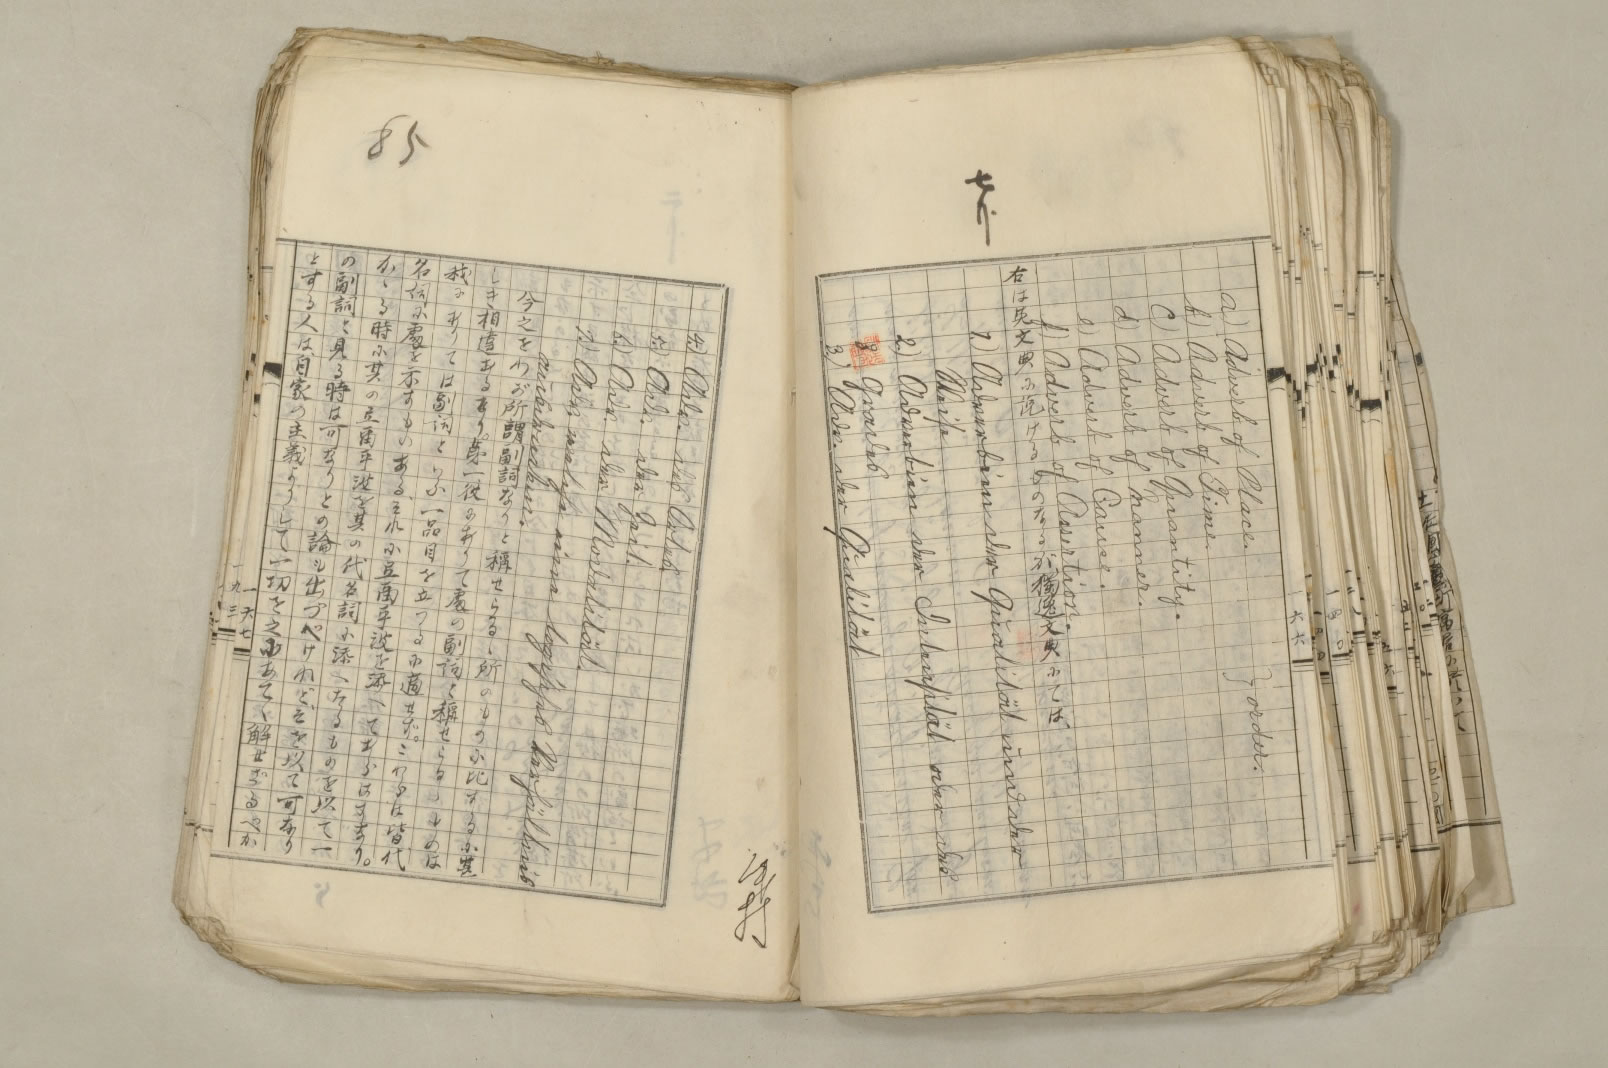 七
a) Adverb of Place.
b) Adverb of Time.
c) Adverb of Quantity.
d) Adverb of manner.
e) Adverb of Cause.
f) Adverb of Assertion.
order.
右は英文典に於けるものなるが獨逸文典にては
1.) Adverbien der Qualität und der
Weise
2.) Adverbien der Intensität oder des
Grades
3.) Adv. der Quantität
一六六
85
4.) Adv. des Ortes
5.) Adv. der Zeit.
6.) Adv. der Modalität.
7.) Adv. welche einen logischen Verhältnis
ausdrücken.
今之をわが所謂副詞なりと稱せらるゝ所のものに比するに其
しき相違あるなり。第一彼にありて處の副詞と稱せらるゝものは
我にありては副詞といふ一品目を立つるに適せず。これらは皆代
名詞の處を示すものあるそれに弖爾乎波を添へてあらはすなり。
かゝる時に其の弖爾乎波を其の代名詞に添へたるものを以て一
の副詞と見る時は可なりとの論も出づべけれどそを以て可なり
とする人は自家の主義よりして一切を之にあてゝ解せざるべか
一六七
一九三